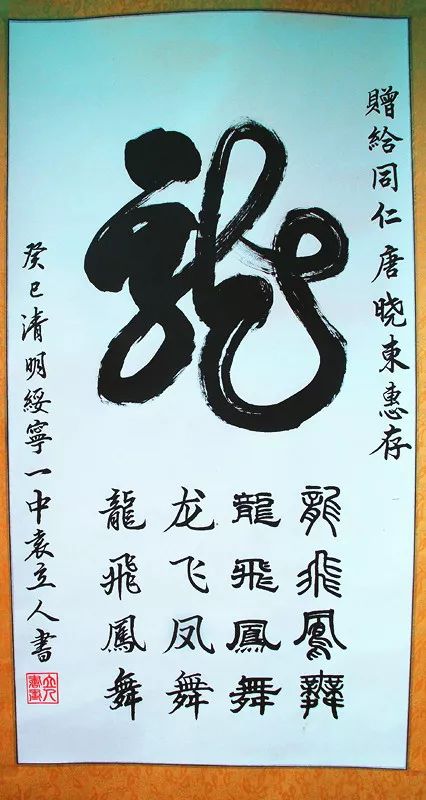 贈給同仁唐晓東惠存
龍
龍飛鳳舞
龍飛鳳舞
龙飞凤舞
龍飛鳳舞
癸巳清明綏寧一中袁立人書